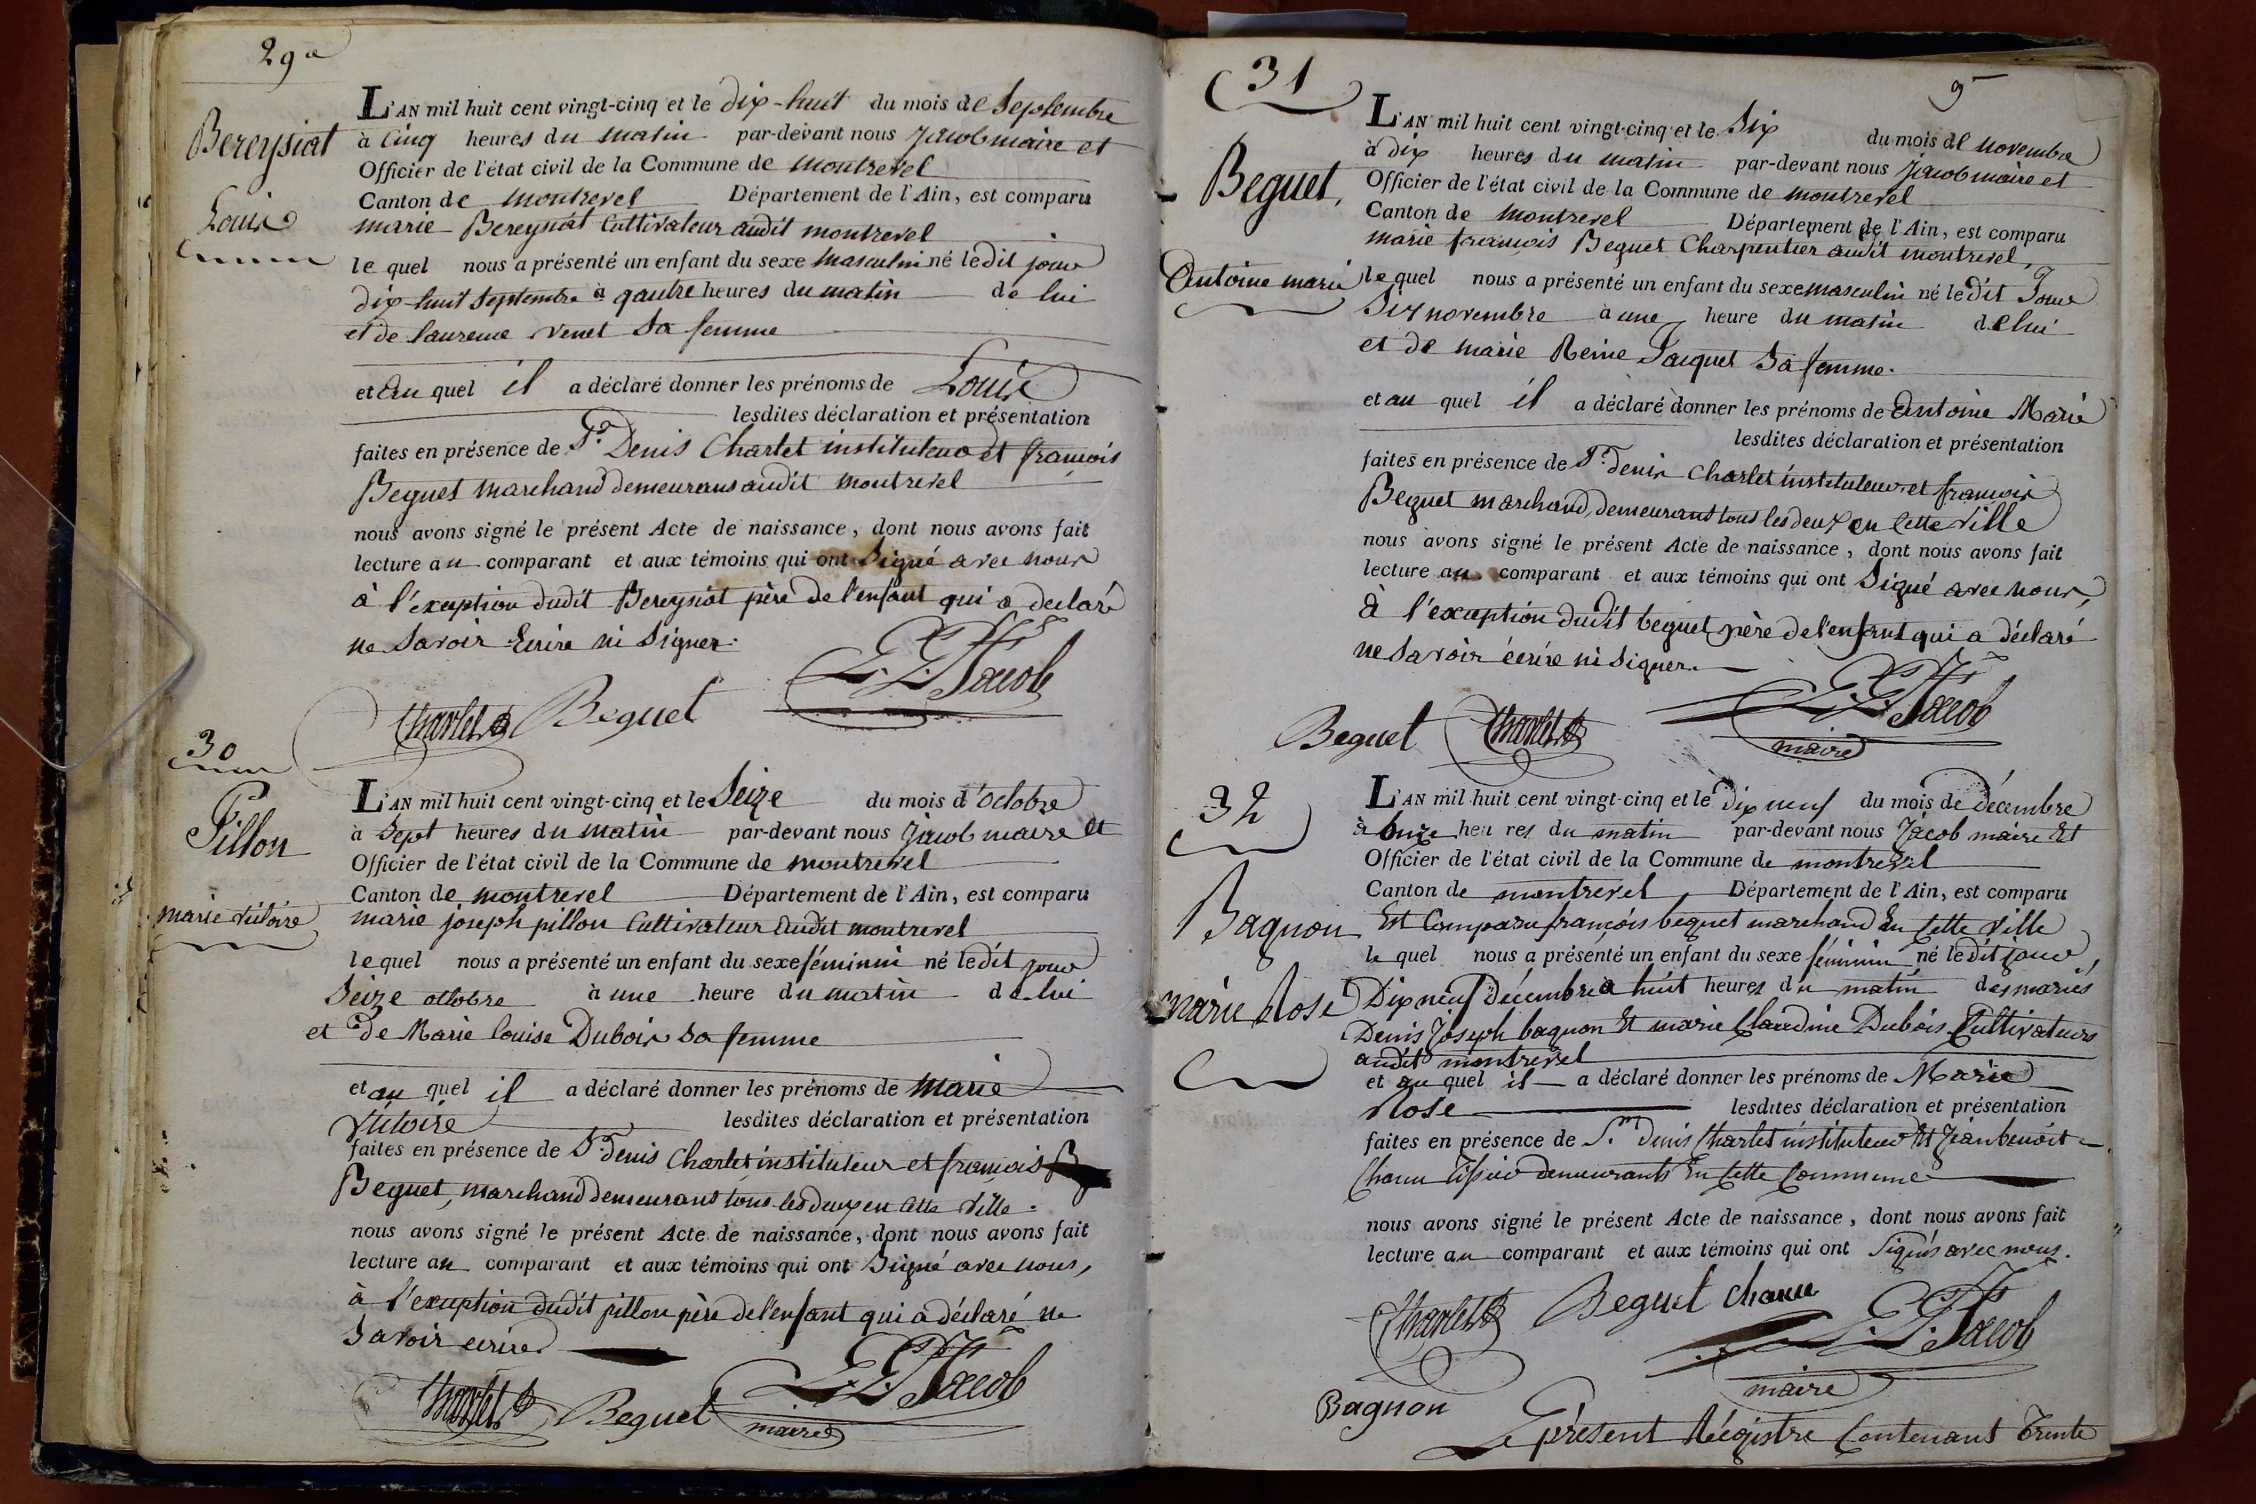 29e
Bereysiat
Louis
L'AN mil huit cent vingt-cinq et le dix-huit du mois de Septembre
à cinq heures du matin par-devant nous Jacob maire et
Officier de l'état civil de la Commune de montrevel
Canton de montrevel Département de l'Ain, est comparu
marie Bereysiat Cultivateur audit montrevel
le quel nous a présenté un enfant du sexe masculin né ledit jour
dix-huit Septembre à quatre heures du matin de lui
et de laurence venet sa femme
et au quel il a déclaré donner les prénoms de Louis
lesdites déclaration et présentation
faites en présence de Sr. Denis Charlet instituteur et françois
Beguet marchand demeurans audit montrevel
nous avons signé le présent Acte de naissance, dont nous avons fait
lecture au comparant et aux témoins qui ont Signé avec nous
à l'exception dudit Bereysiat père de l'enfant qui a declaré
ne Savoir Ecrire ni Signer.
Charlet Beguet Jacob
30
Pillon
marie victoire
L'AN mil huit cent vingt-cinq et le Seize du mois d'octobre
à Sept heures du matin par-devant nous Jacob maire et
Officier de l'état civil de la Commune de montrevel
Canton de montrevel Département de l'Ain, est comparu
marie joseph pillon Cultivateur audit montrevel
le quel nous a présenté un enfant du sexe féminin né ledit jour
Seize octobre à une heure du matin de lui
et de Marie louise Dubois sa femme
et au quel il a déclaré donner les prénoms de Marie
Victoire lesdites déclaration et présentation
faites en présence de Sr. Denis Charlet instituteur et françois
Beguet, marchand demeurans tous les deux en cette ville.
nous avons signé le présent Acte de naissance, dont nous avons fait
lecture au comparant et aux témoins qui ont Signé avec nous,
à l'exception dudit pillon père de l'enfant qui a déclaré ne
Savoir ecrire.
Charlet Beguet Jacob
maire
31
9
Beguet,
Antoine marie
L'AN mil huit cent vingt-cinq et le Six du mois de novembre
à dix heures du matin par-devant nous Jacob maire et
Officier de l'état civil de la Commune de montrevel
Canton de montrevel Département de l'Ain, est comparu
marie françois Beguet Charpentier audit montrevel,
le quel nous a présenté un enfant du sexe masculin né ledit Jour
Six novembre à une heure du matin de lui
et de marie Reine Jacquet sa femme.
et au quel il a déclaré donner les prénoms de Antoine Marie
lesdites déclaration et présentation
faites en présence de Sr. denis Charlet instituteur et françois
Beguet marchand, demeurant tous les deux en cette ville
nous avons signé le présent Acte de naissance, dont nous avons fait
lecture au comparant et aux témoins qui ont Signé avec nous,
à l'exception dudit beguet père de l'enfant qui a déclaré
ne savoir écrire ni signer.
Beguet Charlet Jacob
maire
32
Bagnon
marie Rose
L'AN mil huit cent vingt-cinq et le Dix neuf du mois de décembre
à onze heures du matin par-devant nous Jacob maire Et
Officier de l'état civil de la Commune de montrevel
Canton de montrevel Département de l'Ain, est comparu
Est Comparu françois beguet marchand En Cette Ville
le quel nous a présenté un enfant du sexe féminin né ledit jour,
Dix neuf décembre à huit heures du matin des mariés
Denis Joseph bagnon Et marie Claudine Dubois Cultivateurs
audit montrevel
et au quel il a déclaré donner les prénoms de Marie
Rose lesdites déclaration et présentation
faites en présence de Sr. Denis Charlet instituteur Et Jean benoit
Chanu demeurants En Cette Commune
nous avons signé le présent Acte de naissance, dont nous avons fait
lecture au comparant et aux témoins qui ont Signés avec nous.
Charlet Beguet Chanu Jacob
maire
Bagnon
Le présent Régistre Contenant Trente